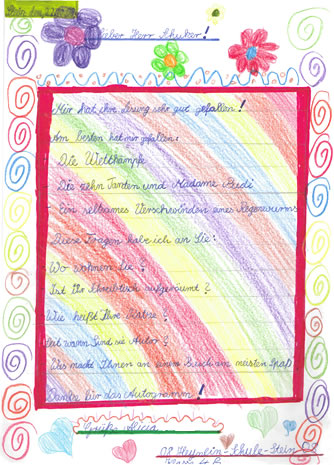 Lieber Herr Schuker!
Mir hat ihre Lesung sehr gut gefallen!
Am besten hat mir gefallen:
Die Wettkämpfe
Die zehn Tanten und Madame
Ein seltsames Verschwinden eines Regenwurms
Diese Fragen habe ich an Sie:
Wo wohnen Sie?
Ist Ihr Schreibtisch aufgeräumt?
Wie heißt Ihre
Seit wann sind sie Autor?
Was macht Ihnen an einem Buch am meisten Spaß
Danke für das Autogramm!
Grüße Alicia
Schule-Stein
Klasse